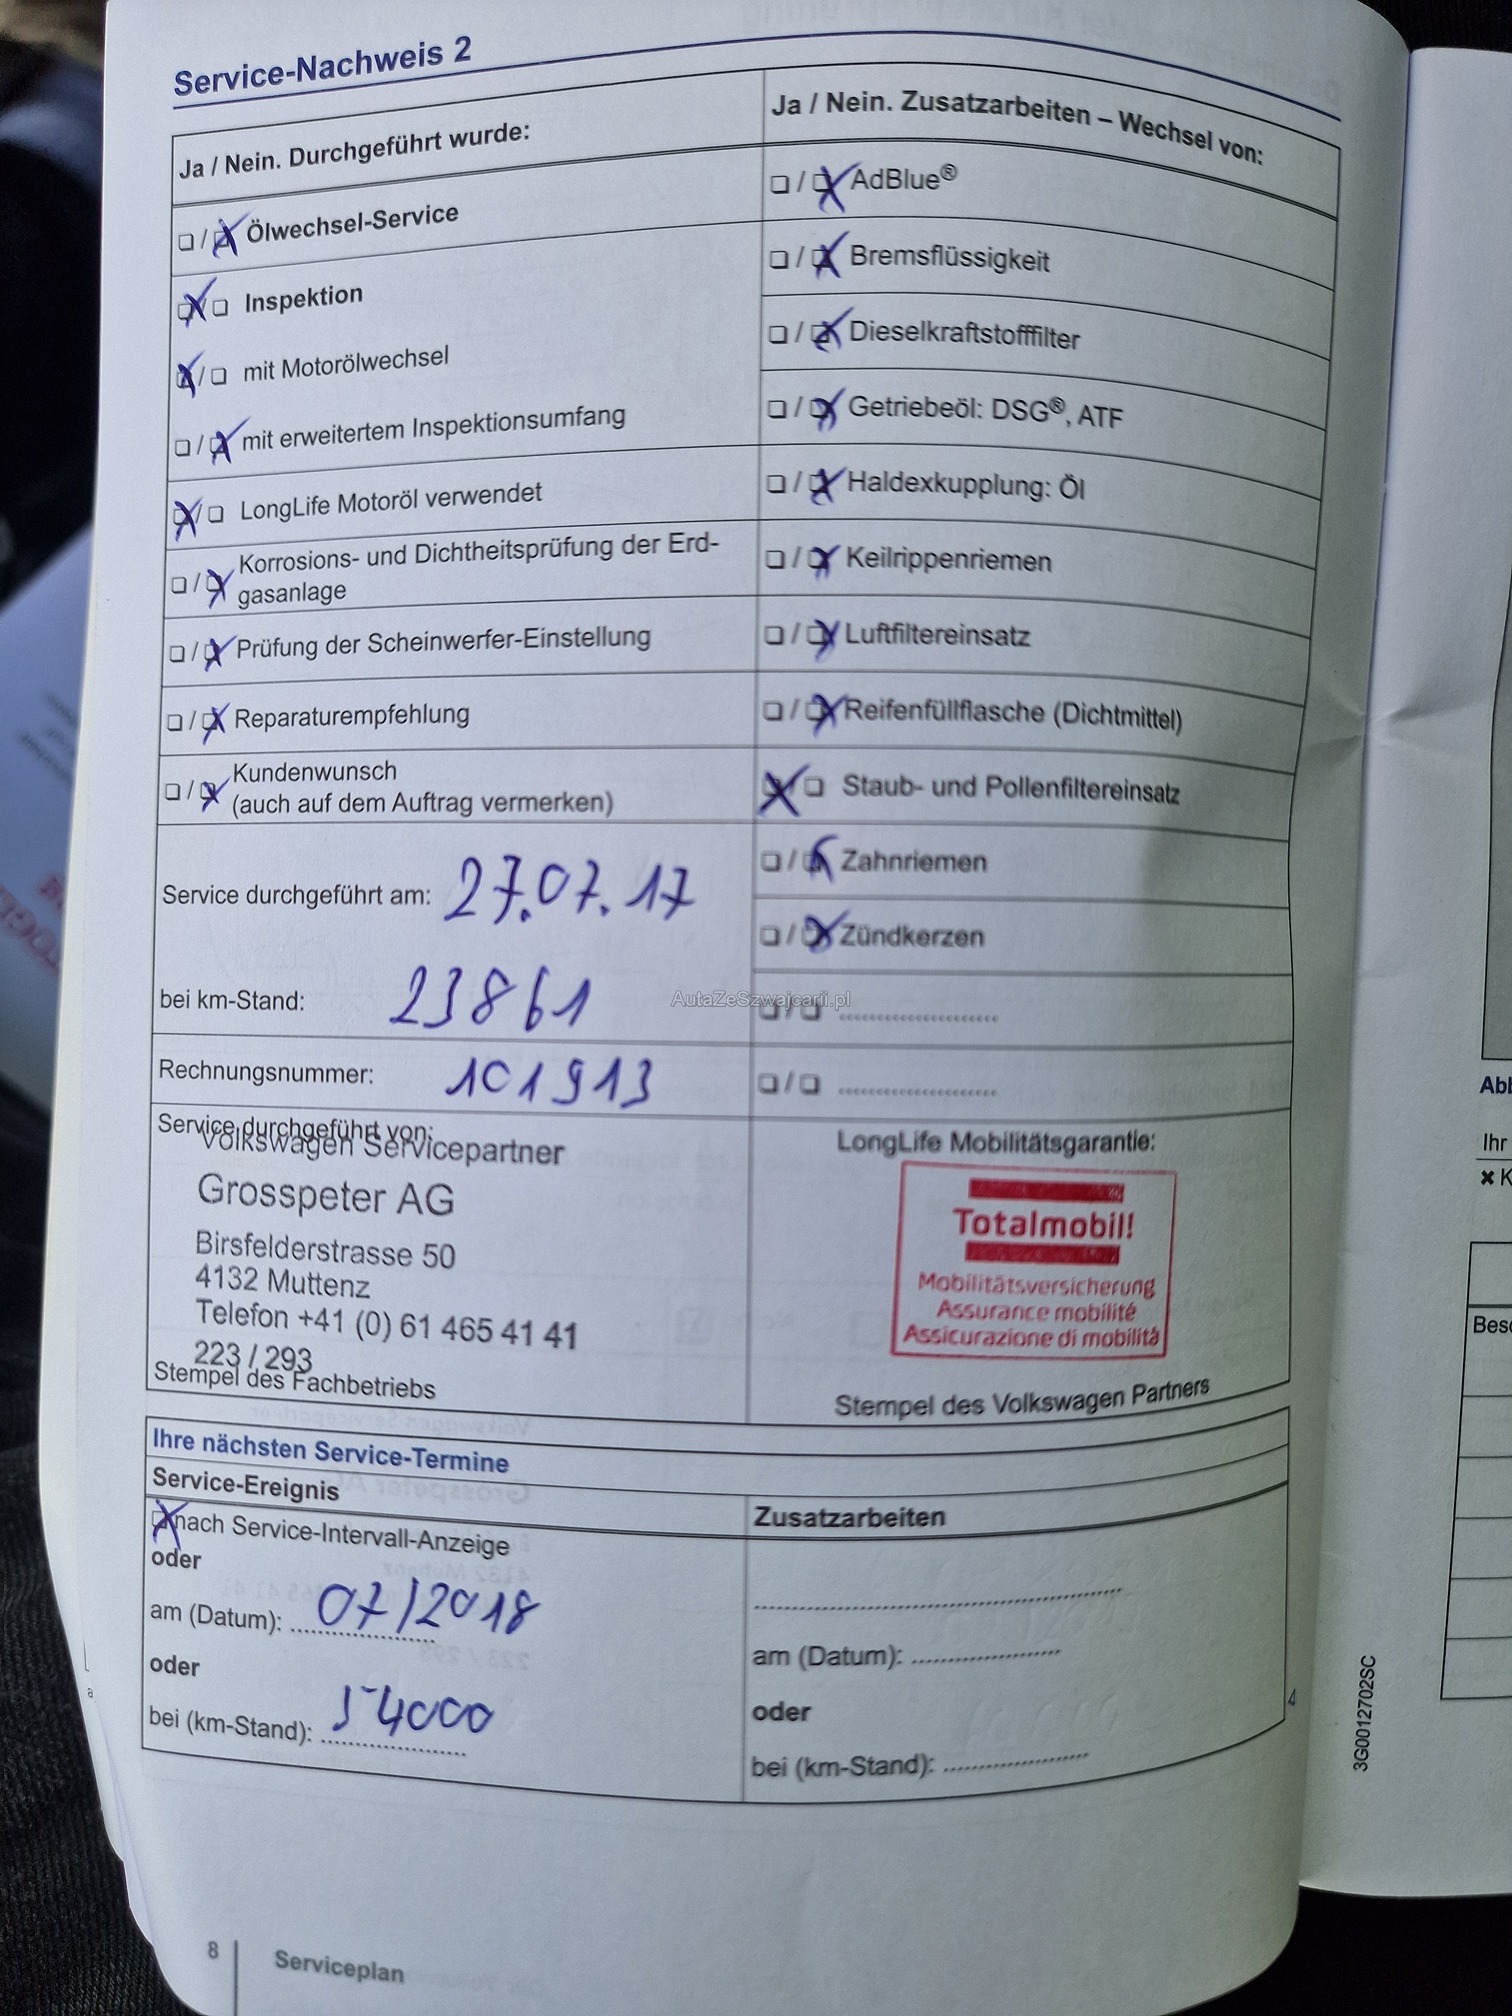 Service-Nachweis 2
Ja / Nein. Durchgeführt wurde:
❏ / ☒ Ölwechsel-Service
☒ / ❏ Inspektion
☒ / ❏ mit Motorölwechsel
❏ / ☒ mit erweitertem Inspektionsumfang
☒ / ❏ LongLife Motoröl verwendet
❏ / ☒ Korrosions- und Dichtheitsprüfung der Erd-
gasanlage
❏ / ☒ Prüfung der Scheinwerfer-Einstellung
❏ / ☒ Reparaturempfehlung
❏ / ☒ Kundenwunsch
(auch auf dem Auftrag vermerken)
Service durchgeführt am: 27.07.17
bei km-Stand: 23861
Rechnungsnummer: 101913
Service durchgeführt von:
Volkswagen Servicepartner
Grosspeter AG
Birsfelderstrasse 50
4132 Muttenz
Telefon +41 (0) 61 465 41 41
223 / 293
Stempel des Fachbetriebs
Ja / Nein. Zusatzarbeiten – Wechsel von:
❏ / ☒ AdBlue®
❏ / ☒ Bremsflüssigkeit
❏ / ☒ Dieselkraftstofffilter
❏ / ☒ Getriebeöl: DSG®, ATF
❏ / ☒ Haldexkupplung: Öl
❏ / ☒ Keilrippenriemen
❏ / ☒ Luftfiltereinsatz
❏ / ☒ Reifenfüllflasche (Dichtmittel)
☒ / ❏ Staub- und Pollenfiltereinsatz
❏ / ☒ Zahnriemen
❏ / ☒ Zündkerzen
AutaZeSzwajcarii.pl
❏ / ❏ ......................
❏ / ❏ ......................
LongLife Mobilitätsgarantie:
Totalmobil!
Mobilitätsversicherung
Assurance mobilité
Assicurazione di mobilità
Stempel des Volkswagen Partners
Ihre nächsten Service-Termine
Service-Ereignis
☒ nach Service-Intervall-Anzeige
oder
am (Datum): 07/2018
oder
bei (km-Stand): 54000
Zusatzarbeiten
am (Datum): ......................
oder
bei (km-Stand): ......................
3G0012702SC
8 | Serviceplan
Abl
Ihr
✖ K
Bes